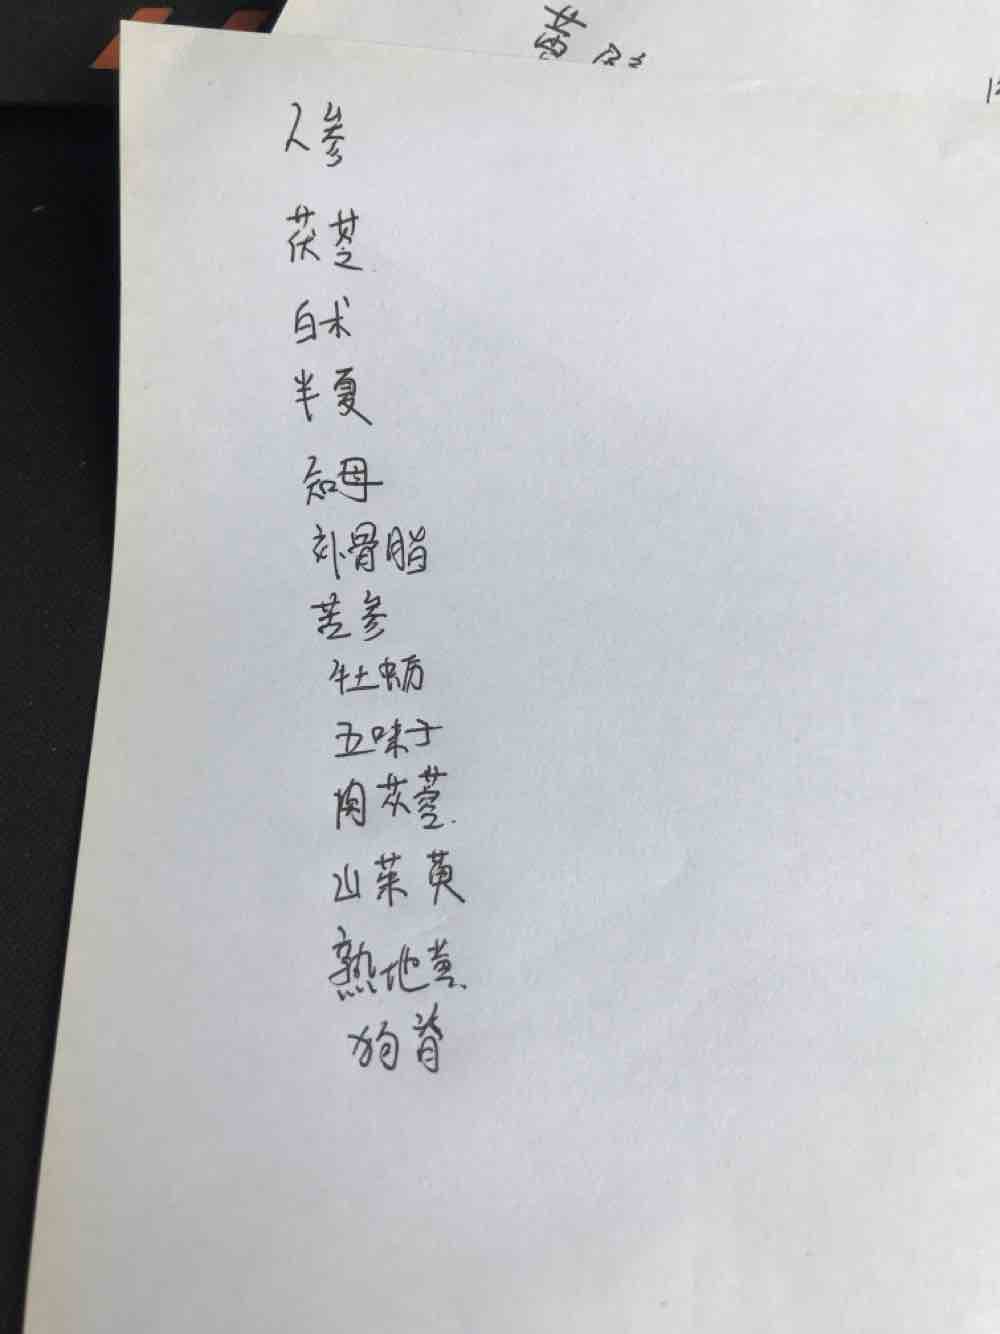 人参
茯苓
白术
半夏
知母
补骨脂
苦参
牡蛎
五味子
肉苁蓉
山茱萸
熟地黄
狗脊